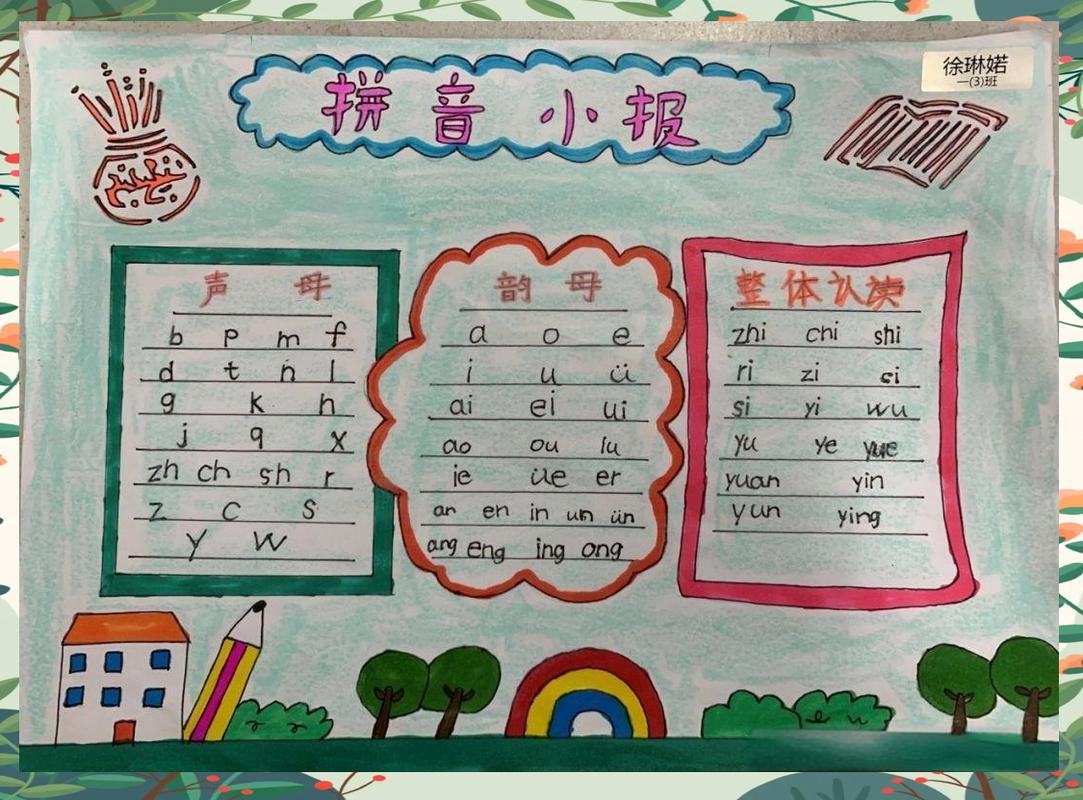 拼音小报
徐琳婼
一(3)班
声 母
b p m f
d t n l
g k h
j q x
zh ch sh r
z c s
y w
韵 母
a o e
i u ü
ai ei ui
ao ou iu
ie üe er
an en in un ün
ang eng ing ong
整体认读
zhi chi shi
ri zi ci
si yi wu
yu ye yue
yuan yin
yun ying